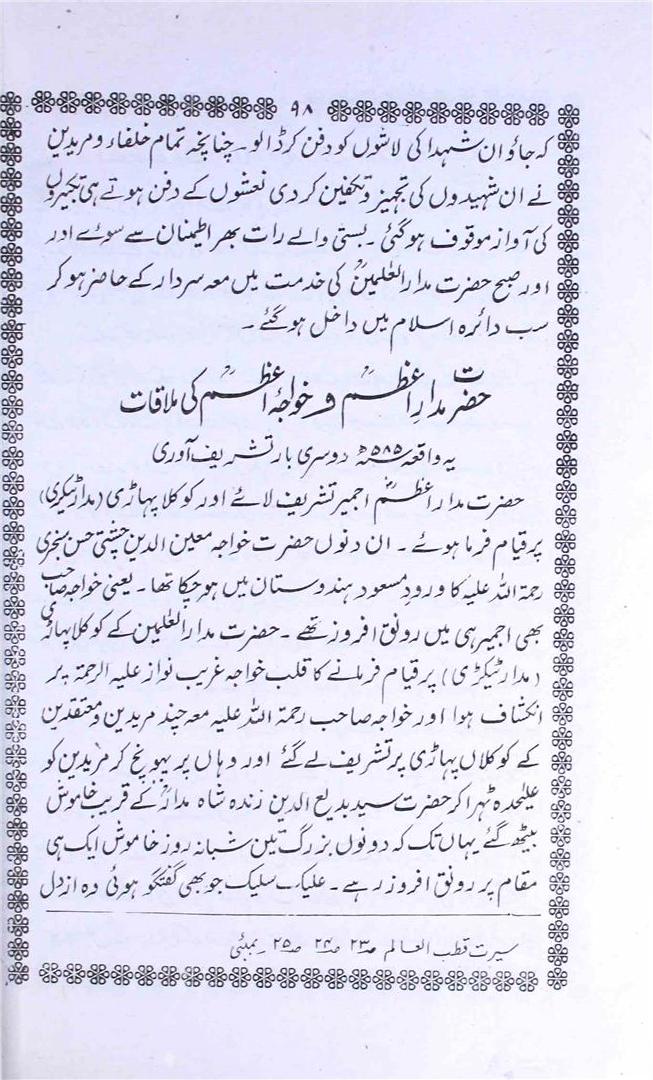 ۹۸
کہ جاؤ ان شہدا کی لاشوں کو دفن کر ڈالو۔ چنانچہ تمام خلفاء و مریدین
نے ان شہیدوں کی تجہیز و تکفین کر دی نعشوں کے دفن ہوتے ہی تکبیروں
کی آواز موقوف ہو گئی۔ بستی والے رات بھر اطمینان سے سوئے اور
اور صبح حضرت مدار العٰلمینؒ کی خدمت میں معہ سردار کے حاضر ہو کر
سب دائرہ اسلام میں داخل ہو گئے۔
حضرت مدارِ اعظمؒ و خواجۂ اعظمؒ کی ملاقات
یہ واقعہ ۵۸۵ھ دوسری بار تشریف آوری
حضرت مدار اعظمؒ اجمیر تشریف لائے اور کوکلا پہاڑی (مدار ٹیکری)
پر قیام فرما ہوئے۔ ان دنوں حضرت خواجہ معین الدین چشتی حسن سنجری
رحمۃ اللہ علیہ کا ورودِ مسعود ہندوستان میں ہو چکا تھا۔ یعنی خواجہ صاحب
بھی اجمیر ہی میں رونق افروز تھے۔ حضرت مدار العٰلمین کے کوکلا پہاڑی
(مدار ٹیکڑی) پر قیام فرمانے کا قلب خواجہ غریب نواز علیہ الرحمۃ پر
انکشاف ہوا اور خواجہ صاحب رحمۃ اللہ علیہ معہ چند مریدین و معتقدین
کے کوکلاں پہاڑی پر تشریف لے گئے اور وہاں پر پہونچ کر مریدین کو
علیٰحدہ ٹہرا کر حضرت سید بدیع الدین زندہ شاہ مدارؒ کے قریب خاموش
بیٹھ گئے یہاں تک کہ دونوں بزرگ تین شبانہ روز خاموش ایک ہی
مقام پر رونق افروز رہے۔ علیک سلیک جو بھی گفتگو ہوئی وہ از دل
سیرت قطب العالم صـ۲۳ صـ۲۴ صـ۲۵ بمبئی